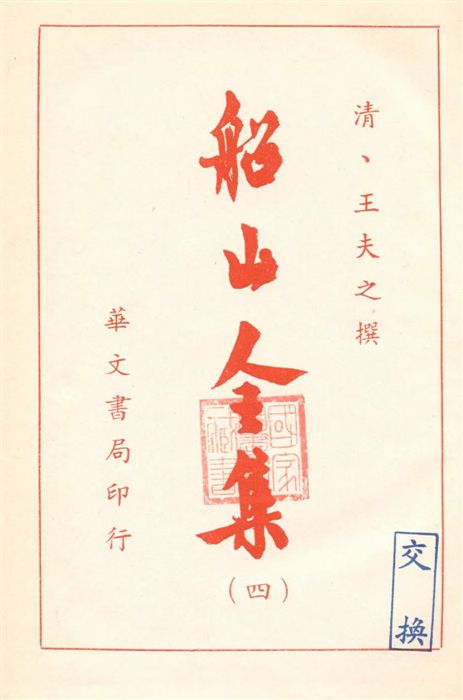 清、王夫之撰
船山全集
(四)
華文書局印行
國家
藏書
交換